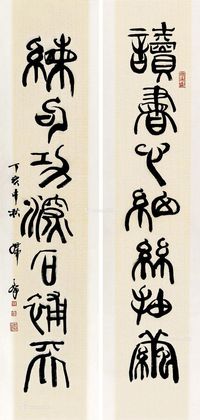 讀書心細絲抽繭
練句功深石補天
丁亥年秋